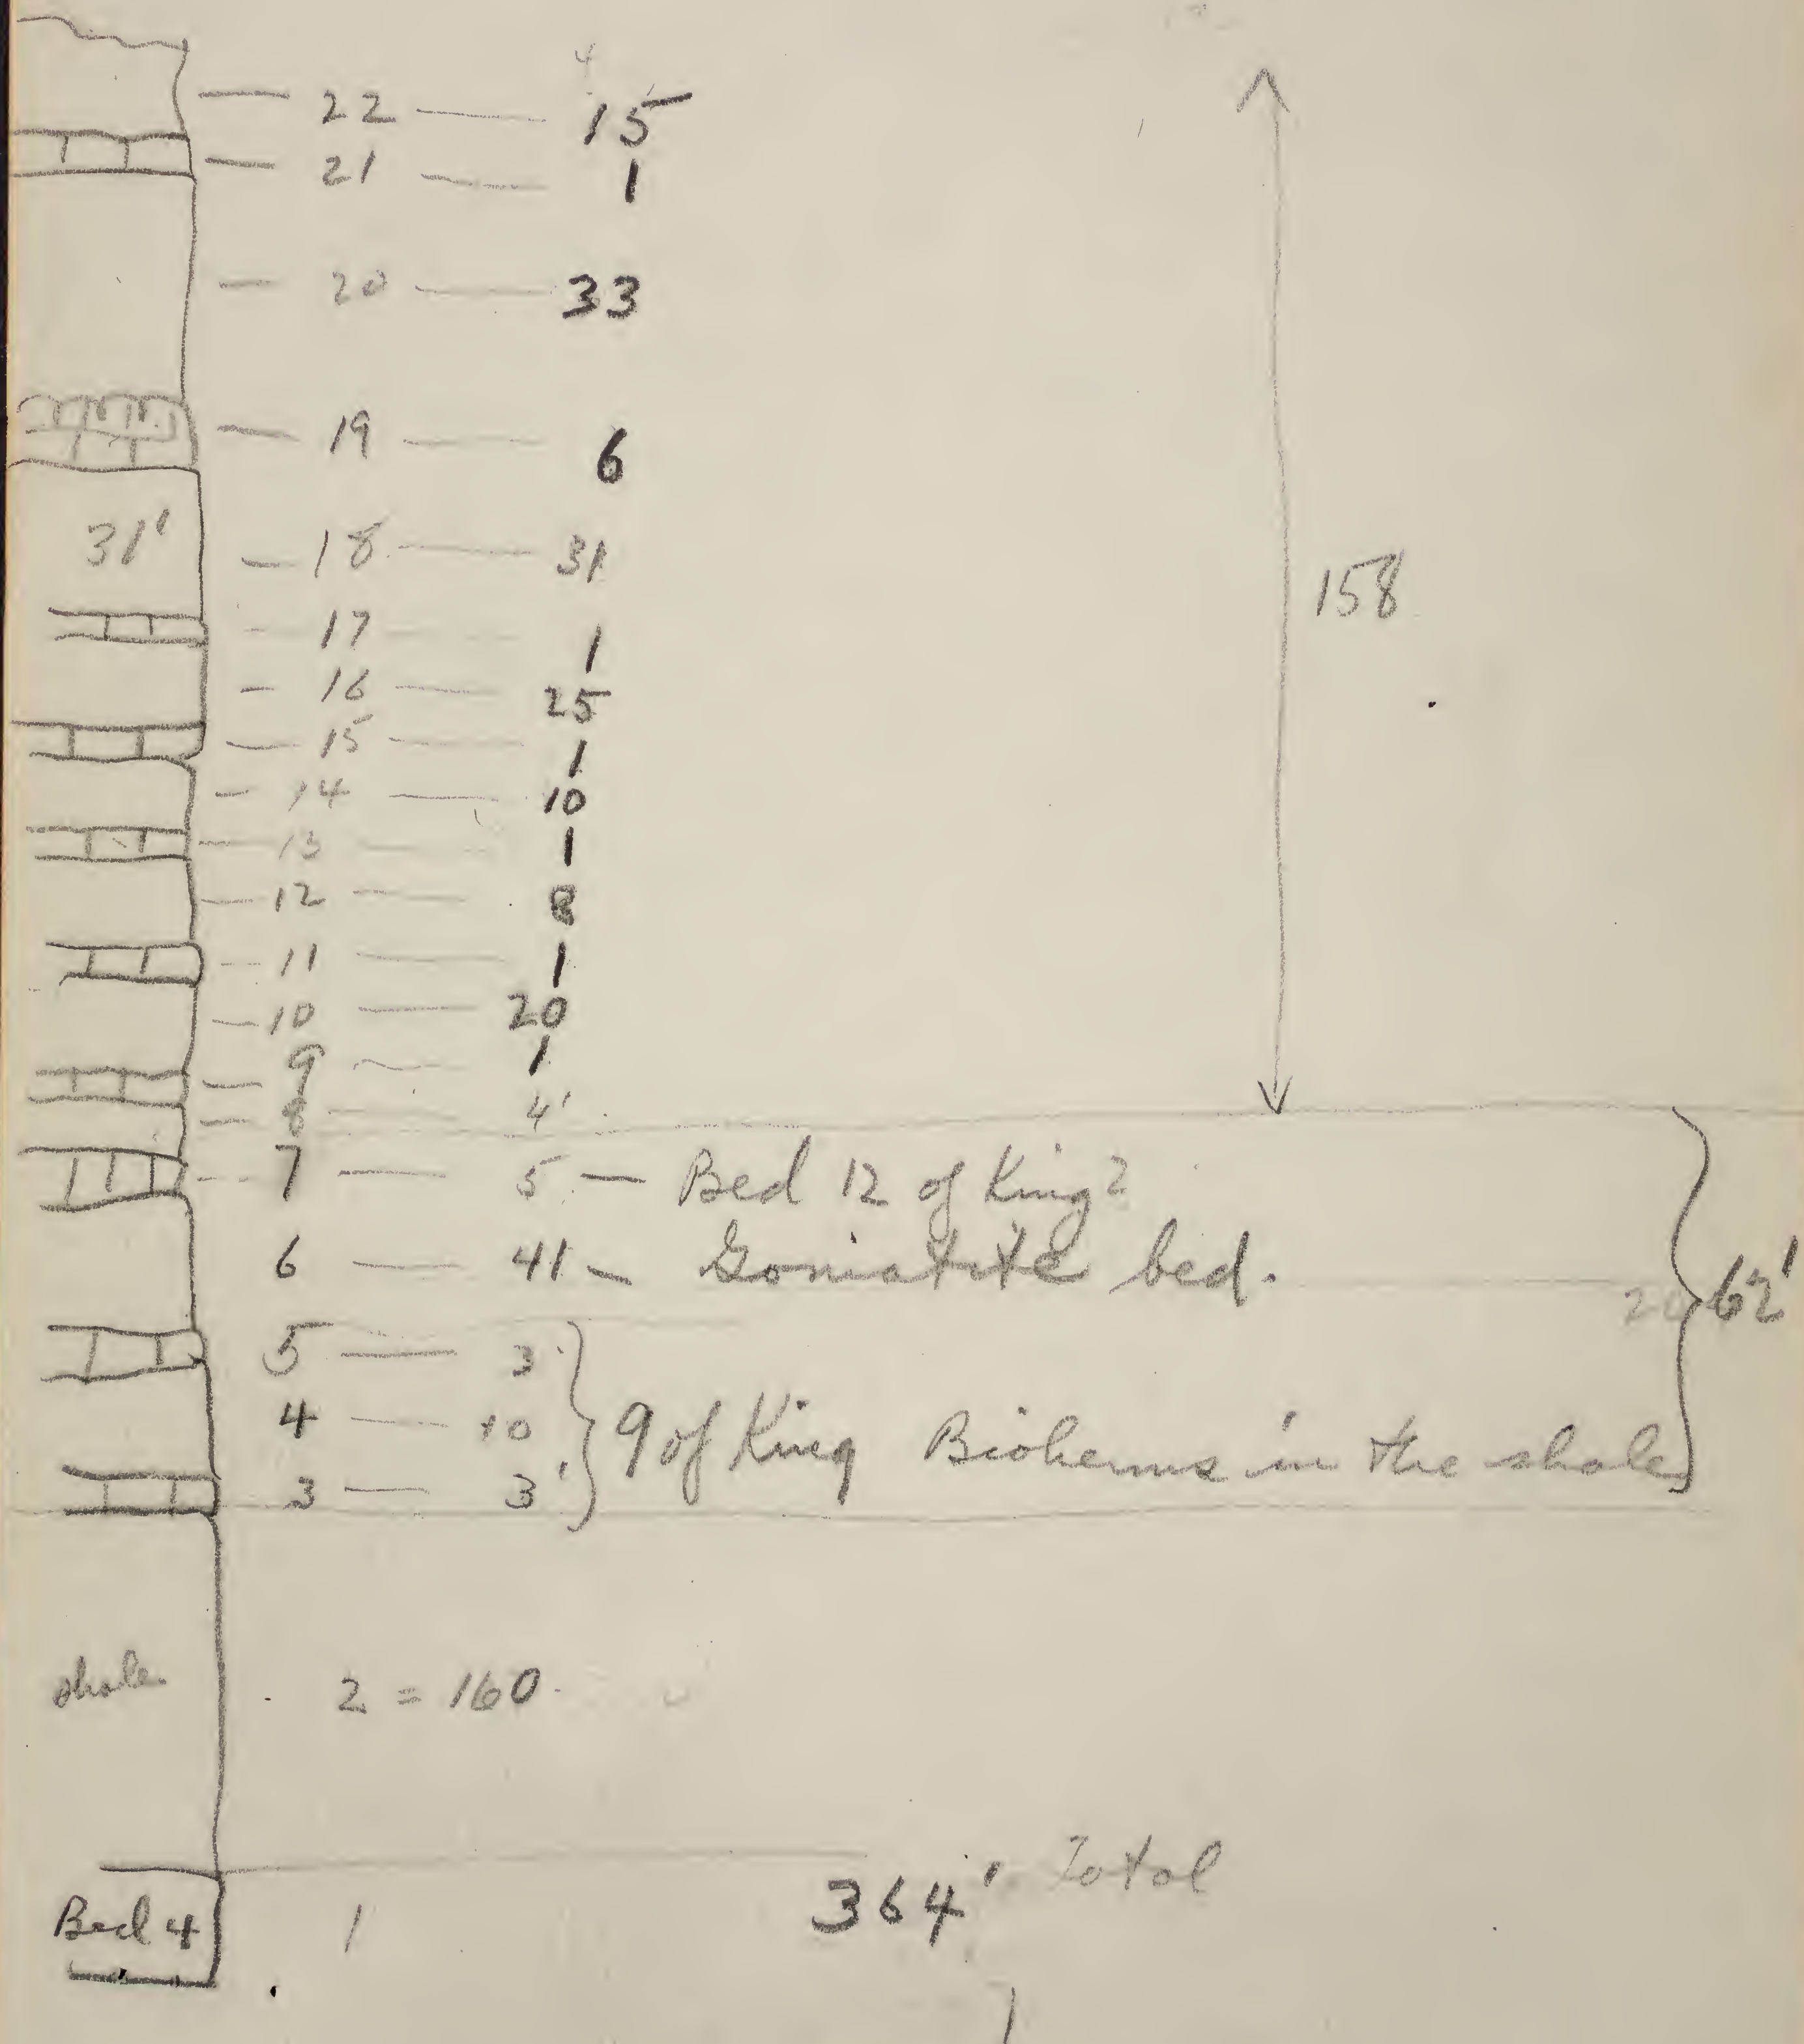 4
22 — 15
21 — 1
20 — 33
19 — 6
31' 18 — 31
17 1
16 — 25
158
15 — 1
14 — 10
13 1
12 — 8
11 — 1
10 — 20
9 — 1
8 — 4'
7 — 5 — Bed 12 of King?
6 — 41 — Goniatite bed.
62'
5 — 3
4 — 10
9 of King Bioherms in the shale
3 — 3'
shale 2 = 160
364' Total
Bed 4 1